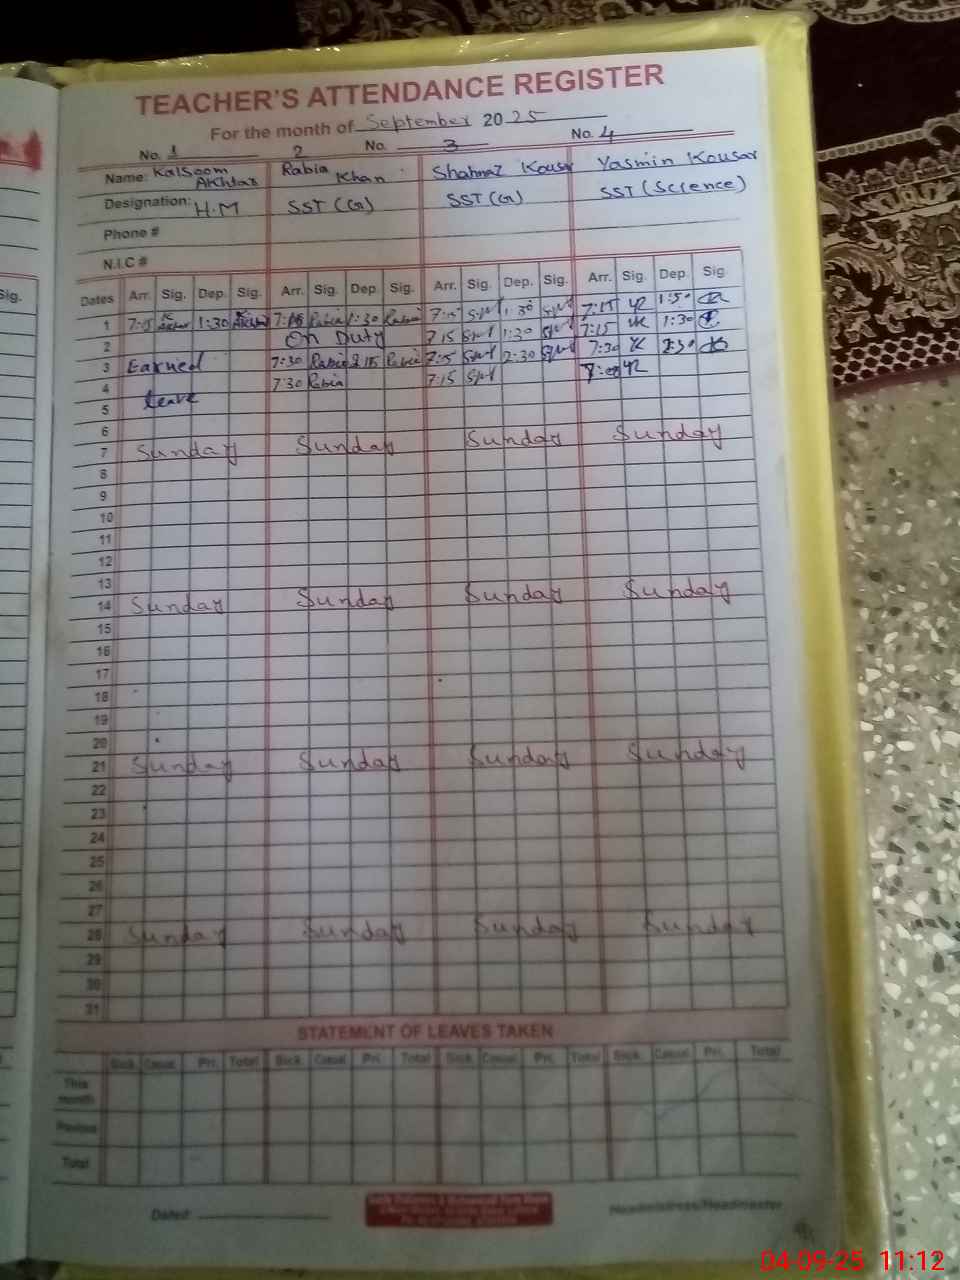 TEACHER'S ATTENDANCE REGISTER
For the month of September 2025
No. 1 2 No. 3 No. 4
Name: Kalsoom Akhtar Rabia Khan Shahnaz Kousar Yasmin Kousar
Designation: H.M SST (G) SST (G) SST (Science)
Phone #
N.I.C #
Sig.
Dates Arr. Sig. Dep. Sig. Arr. Sig. Dep. Sig. Arr. Sig. Dep. Sig. Arr. Sig. Dep. Sig
1 7:15 1:30 7:15 Rabia 1:30 Rabia 7:15 1:30 7:15 1:30
2 On Duty 7:15 1:30 7:15 1:30
3 Earned 7:30 Rabia 2:15 Rabia 7:15 2:30 7:30 2:30
4 7:30 Rabia 7:15
5 leave
6
7 Sunday Sunday Sunday Sunday
8
9
10
11
12
13
14 Sunday Sunday Sunday Sunday
15
16
17
18
19
20
21 Sunday Sunday Sunday Sunday
22
23
24
25
26
27
28 Sunday Sunday Sunday Sunday
29
30
31
STATEMENT OF LEAVES TAKEN
Sick Casual Pri. Total Sick Casual Pri. Total Sick Casual Pri. Total Sick Casual Pri. Total
This month
Previous
Total
Dated:
Headmistress/Headmaster
04-09-25 11:12